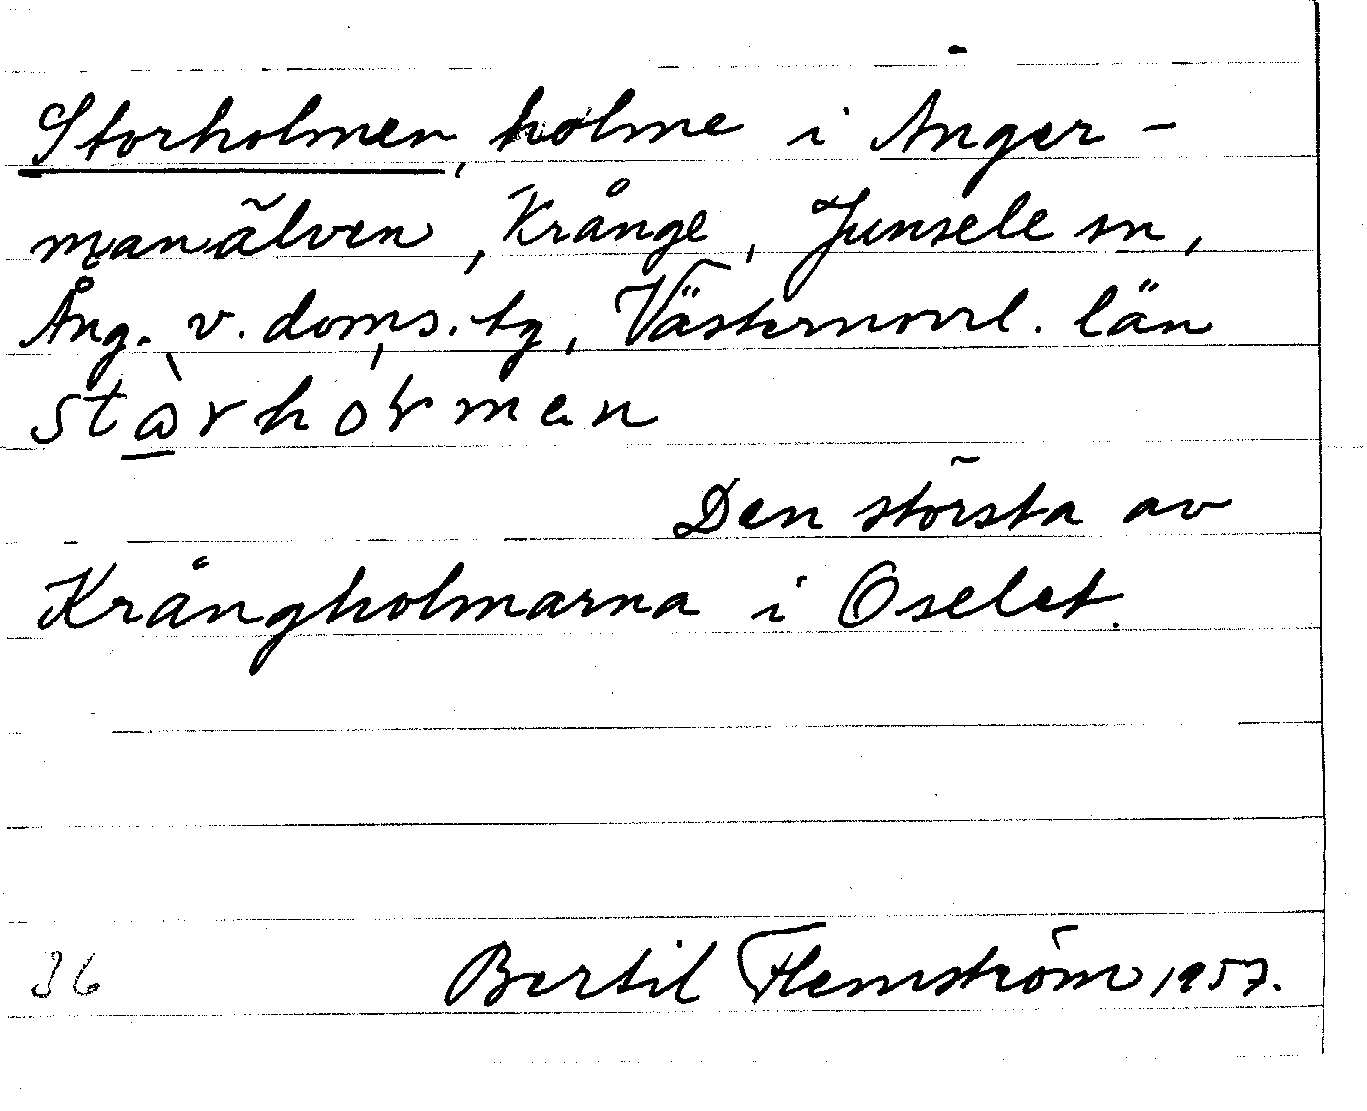 Storholmen, holme i Ånger-
manälven, Krånge, Junsele sn,
Ång. v. doms. tg, Västernorrl. län
Den största av
Krångholmarna i Oselet.
36 Bertil Flemström 1957.